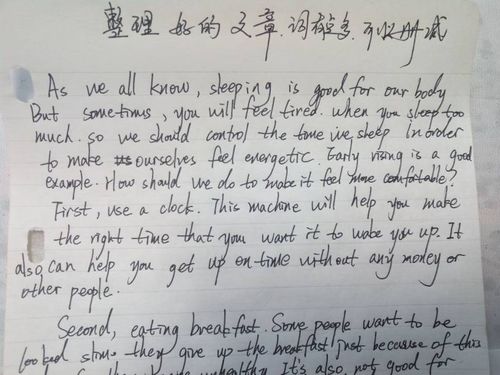 整理好的文章.词有点多.可以删减
As we all know, sleeping is good for our body
But sometimes, you will feel tired. when you sleep too
much. so we should control the time we sleep in order
to make ourselves feel energetic. Early rising is a good
example. How should we do to make it feel more comfortable?
First, use a clock. This machine will help you make
the right time that you want it to wake you up. It
also can help you get up on time without any money or
other people.
Second, eating breakfast. Some people want to be
looked slim. they give up the breakfast just because of this
It's also not good for